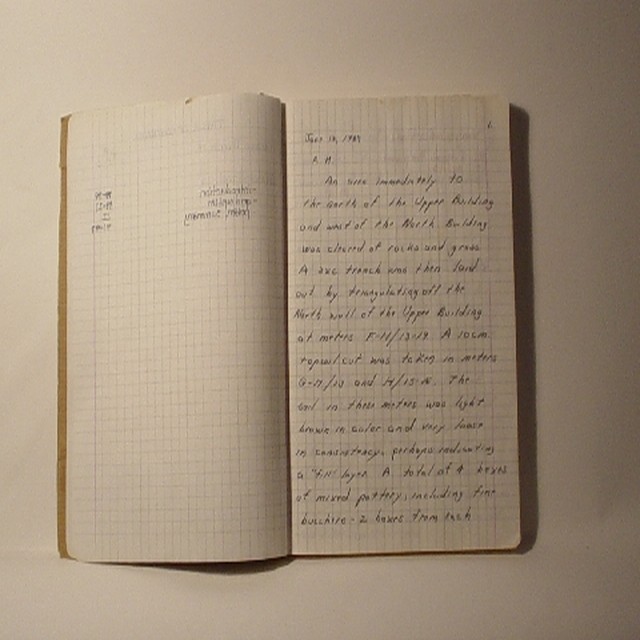 1.
June 19, 1989
A. M.
An area immediately to
the north of the Upper Building
and west of the North Building
was cleared of rocks and grass
A 2x2 trench was then laid
out by triangulating off the
North wall of the Upper Building
at meters F-11/13-19. A 10cm
topsoil cut was taken in meters
and The
soil in these meters was light
brown in color and very loose
in consistency, perhaps indicating
a "fill" layer. A total of 4 boxes
of mixed pottery, including fine
bucchero - 2 boxes from each